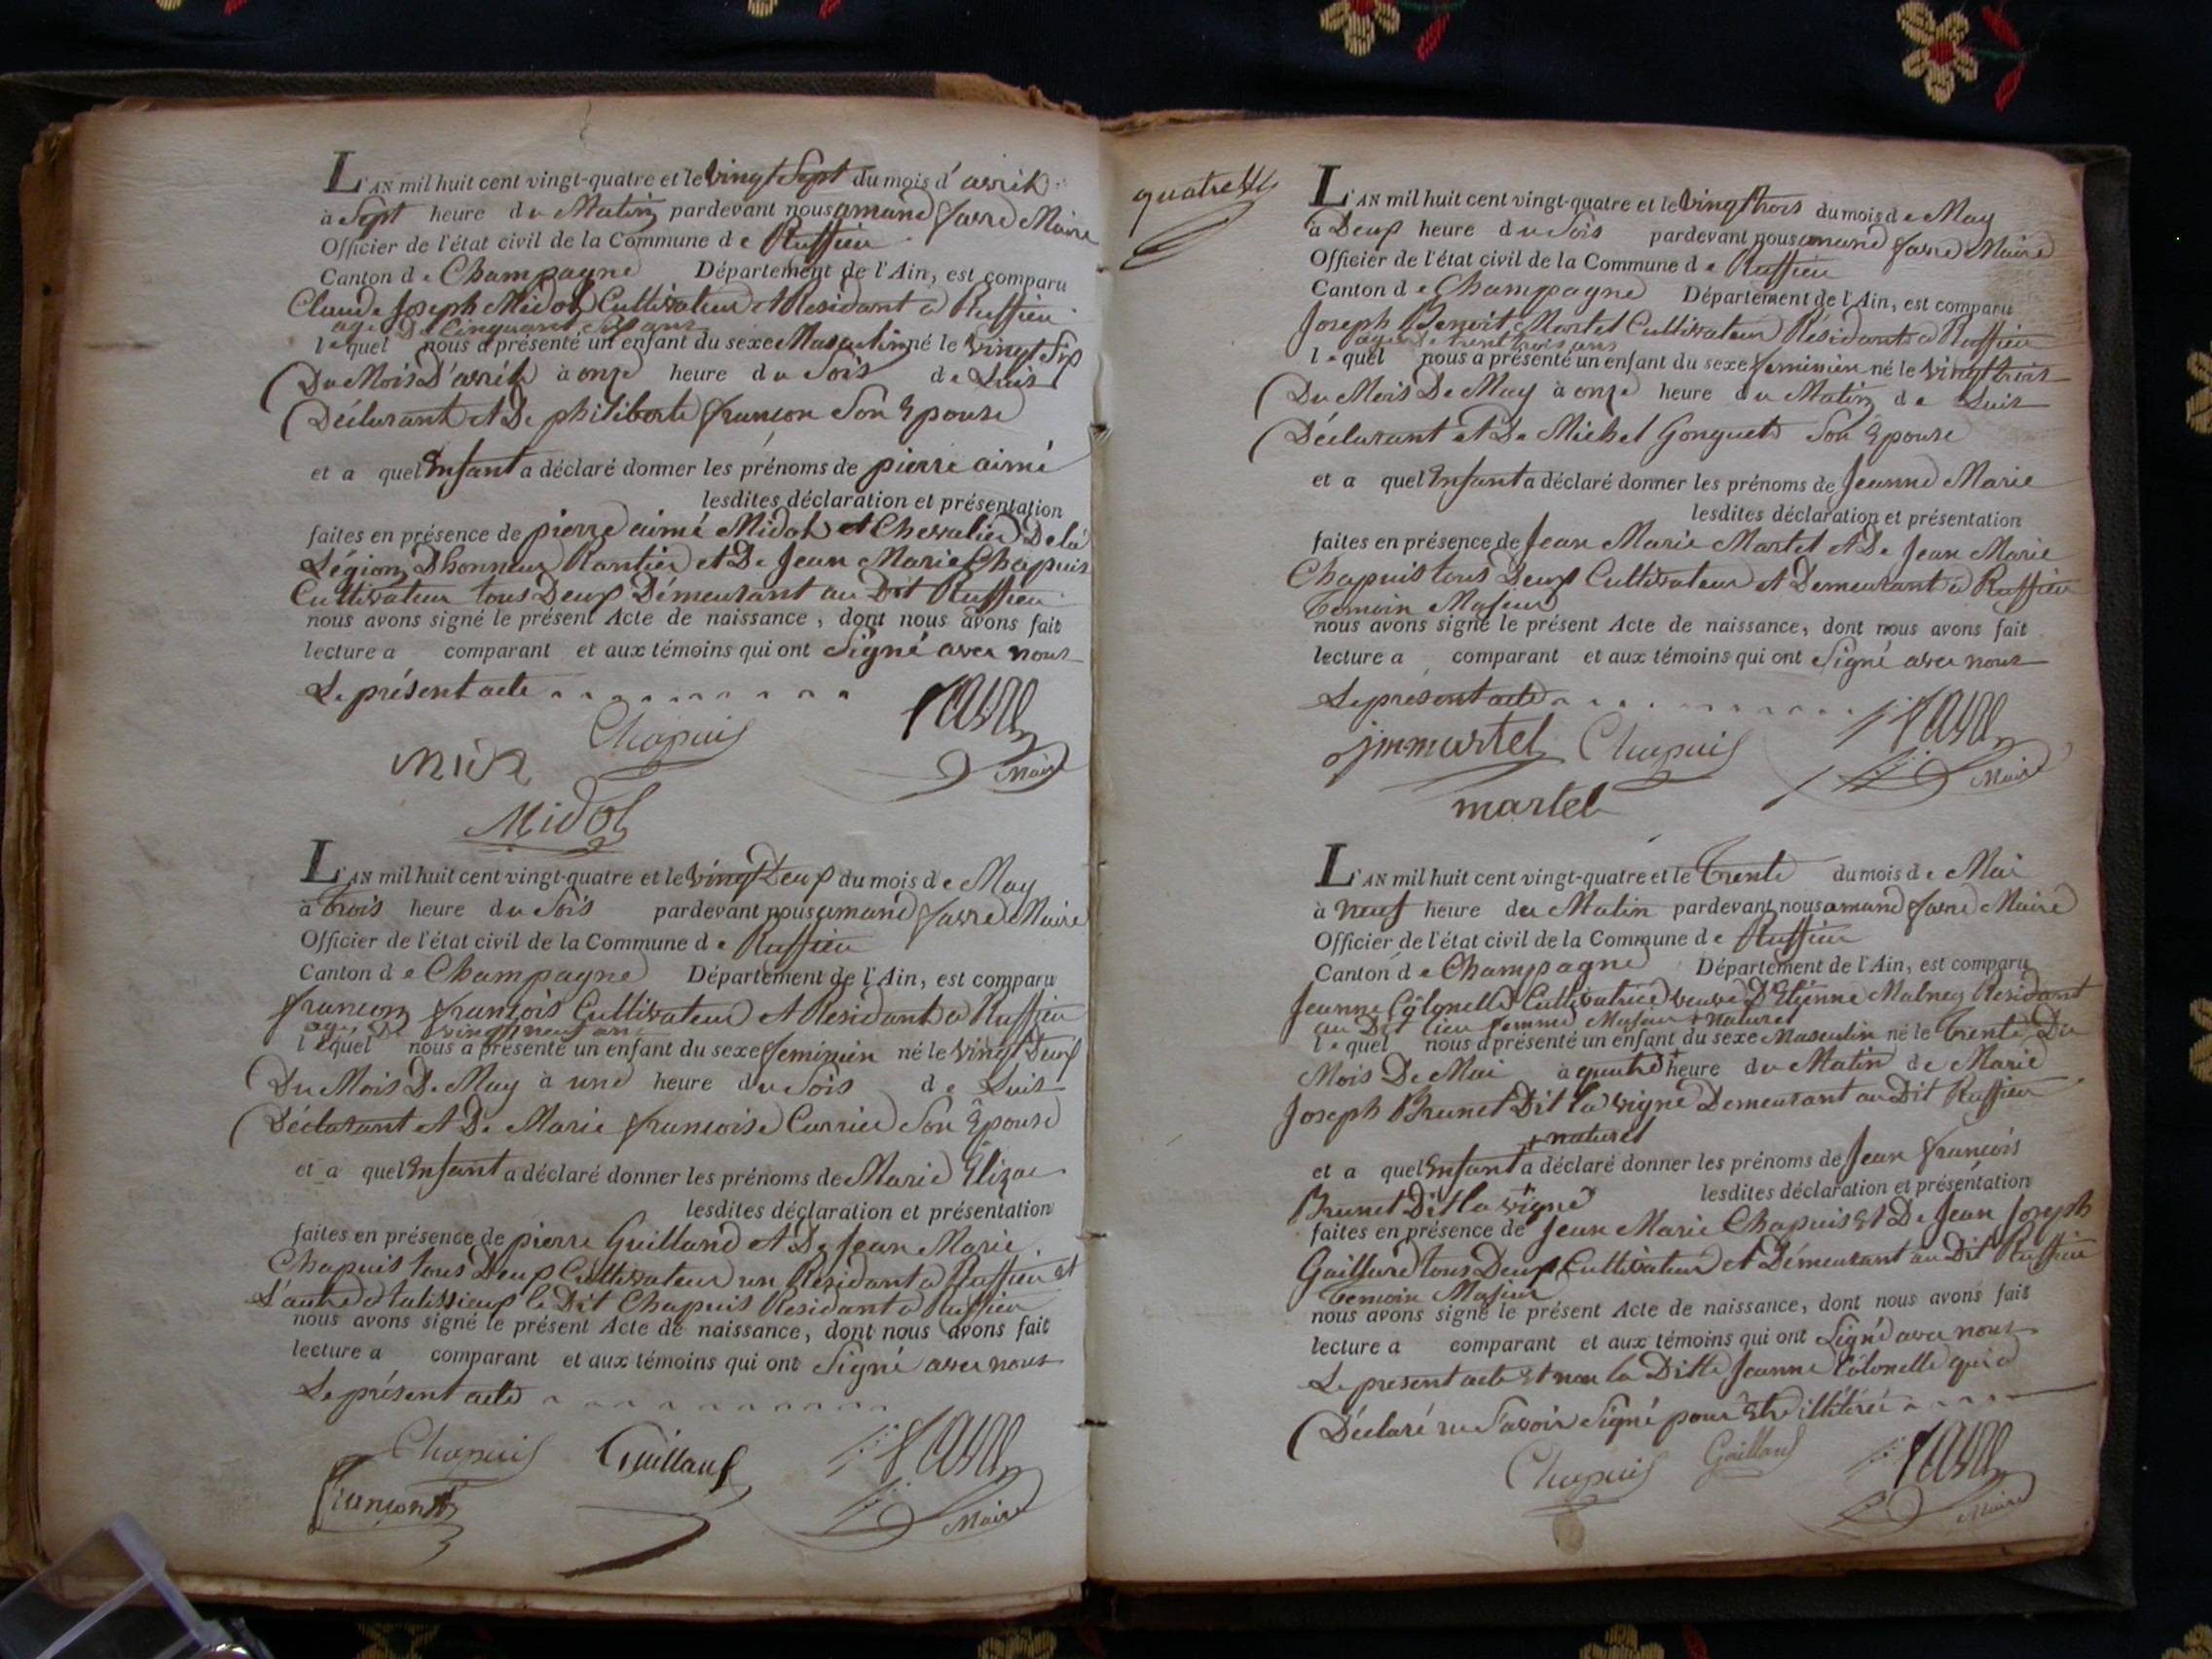 L'AN mil huit cent vingt-quatre et le vingt Sept du mois d' avril
à Sept heure du Matin pardevant nous amand favre Maire
Officier de l'état civil de la Commune de Ruffieu
Canton de Champagne Département de l'Ain, est comparu
Claude Joseph Midol Cultivateur Et Residant a Ruffieu
agé De Cinquant Six ans
lequel nous a présenté un enfant du sexe Masculin né le vingt Six
Du Mois D'avril à onze heure du Soir de Luis
Déclarant et De philiberte françon Son Epouse
et a quel Enfant a déclaré donner les prénoms de pierre aimé
lesdites déclaration et présentation
faites en présence de pierre aimé Midol et Chevalier De la
Légion Dhonneur Rantier et De Jean Marie Chapuis
Cultivateur tous Deux Démeurant au Dit Ruffieu
nous avons signé le présent Acte de naissance, dont nous avons fait
lecture a comparant et aux témoins qui ont Signé avec nous
Le présent acte
Chapuis favre
Maire
Midol
L'AN mil huit cent vingt-quatre et le vingt Deux du mois de May
à trois heure du Soir pardevant nous amand favre Maire
Officier de l'état civil de la Commune de Ruffieu
Canton de Champagne Département de l'Ain, est comparu
françon françois Cultivateur Et Residant a Ruffieu
agé De vingt neuf ans
lequel nous a présenté un enfant du sexe feminin né le vingt Deux
Du Mois De May à une heure du Soir de Luis
Déclarant et De Marie françoise Currier Son Epouse
et a quel Enfant a déclaré donner les prénoms de Marie Eliza
lesdites déclaration et présentation
faites en présence de pierre Guilland et De Jean Marie
Chapuis tous Deux Cultivateur un Residant a Ruffieu et
L'autre a talissieux le Dit Chapuis Residant a Ruffieu
nous avons signé le présent Acte de naissance, dont nous avons fait
lecture a comparant et aux témoins qui ont Signé avec nous
Le présent acte
Chapuis Guilland favre
françon Maire
quatre
L'AN mil huit cent vingt-quatre et le vingt trois du mois de May
à Deux heure du Soir pardevant nous amand favre Maire
Officier de l'état civil de la Commune de Ruffieu
Canton de Champagne Département de l'Ain, est comparu
Joseph Benoit Martel Cultivateur Résidant a Ruffieu
agé de trent trois ans
lequel nous a présenté un enfant du sexe feminin né le vingt trois
Du Mois De May à onze heure du Matin de Luis
Déclarant et De Michel Gonguet Son Epouse
et a quel Enfant a déclaré donner les prénoms de Jeanne Marie
lesdites déclaration et présentation
faites en présence de Jean Marie Martel et De Jean Marie
Chapuis tous Deux Cultivateur et Demeurant a Ruffieu
temoin Majeur
nous avons signé le présent Acte de naissance, dont nous avons fait
lecture a comparant et aux témoins qui ont Signé avec nous
Le présent acte
jmmartel Chapuis favre
Maire
martel
L'AN mil huit cent vingt-quatre et le trente du mois de Mai
à neuf heure du Matin pardevant nous amand favre Maire
Officier de l'état civil de la Commune de Ruffieu
Canton de Champagne Département de l'Ain, est comparu
Jeanne Côlonelle Cultivatrice veuve D'Etienne Malney Residant
au Dit lieu femme Majeur + naturel
lequel nous a présenté un enfant du sexe Masculin né le trente Du
Mois De Mai à quatre heure du Matin de Marie
Joseph Brunet Dit la vigne Demeurant au Dit Ruffieu
+ naturel
et a quel Enfant a déclaré donner les prénoms de Jean françois
Brunet Dit la vigne lesdites déclaration et présentation
faites en présence de Jean Marie Chapuis et De Jean Joseph
Gaillard tous Deux Cultivateur et Démeurant au Dit Ruffieu
temoin Majeur
nous avons signé le présent Acte de naissance, dont nous avons fait
lecture a comparant et aux témoins qui ont Signé avec nous
Le présent acte et non la Ditte Jeanne Côlonelle qui a
Déclaré ne Savoir Signé pour Etre illitérée
Chapuis Gailland favre
Maire